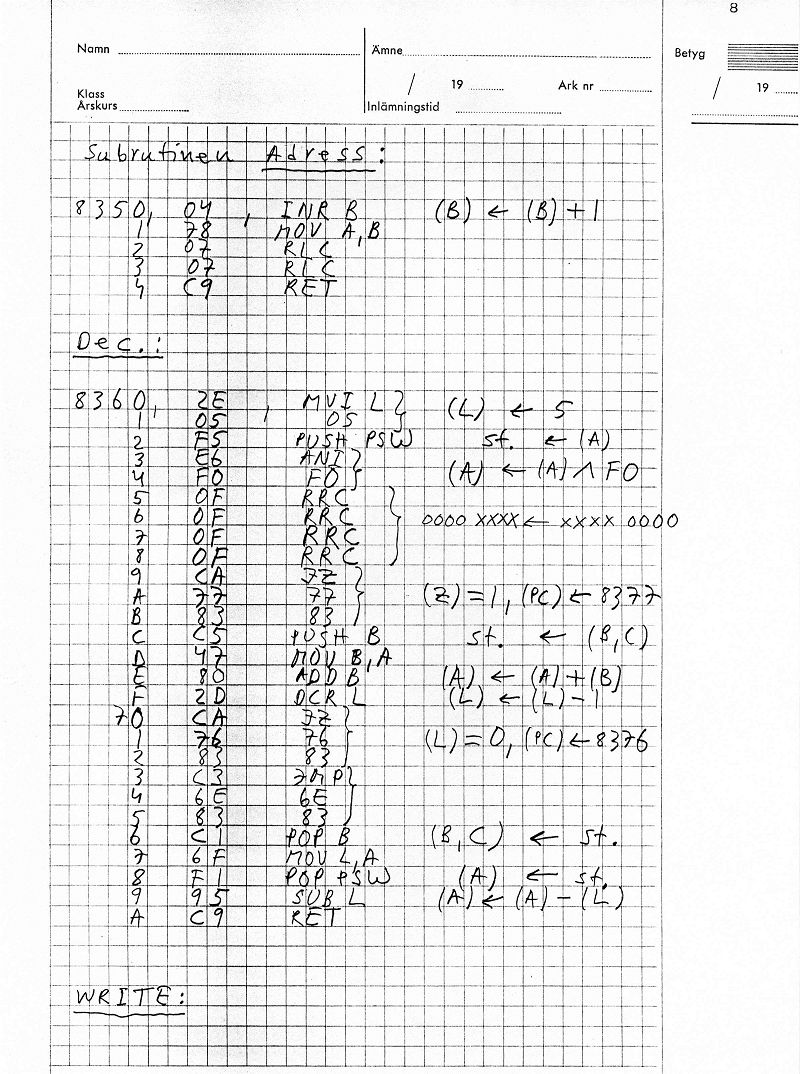 8
Namn Ämne Betyg
/ 19 Ark nr / 19
Klass
Årskurs Inlämningstid
Subrutinen Adress:
8350, 04 , INR B (B) ← (B) + 1
1 78 MOV A,B
2 07 RLC
3 07 RLC
4 C9 RET
Dec.:
8360, 2E , MVI L } (L) ← 5
1 05 05
2 F5 PUSH PSW st. ← (A)
3 E6 ANI } (A) ← (A) ∧ F0
4 F0 F0
5 0F RRC
6 0F RRC } 0000 XXXX ← XXXX 0000
7 0F RRC
8 0F RRC
9 CA JZ
A 77 77 } (Z) = 1, (PC) ← 8377
B 83 83
C C5 PUSH B st. ← (B,C)
D 47 MOV B,A
E 80 ADD B (A) ← (A) + (B)
F 2D DCR L (L) ← (L) - 1
70 CA JZ
1 76 76 } (L) = 0, (PC) ← 8376
2 83 83
3 C3 JMP }
4 6E 6E
5 83 83
6 C1 POP B (B,C) ← st.
7 6F MOV L,A
8 F1 POP PSW (A) ← st.
9 95 SUB L (A) ← (A) - (L)
A C9 RET
WRITE: